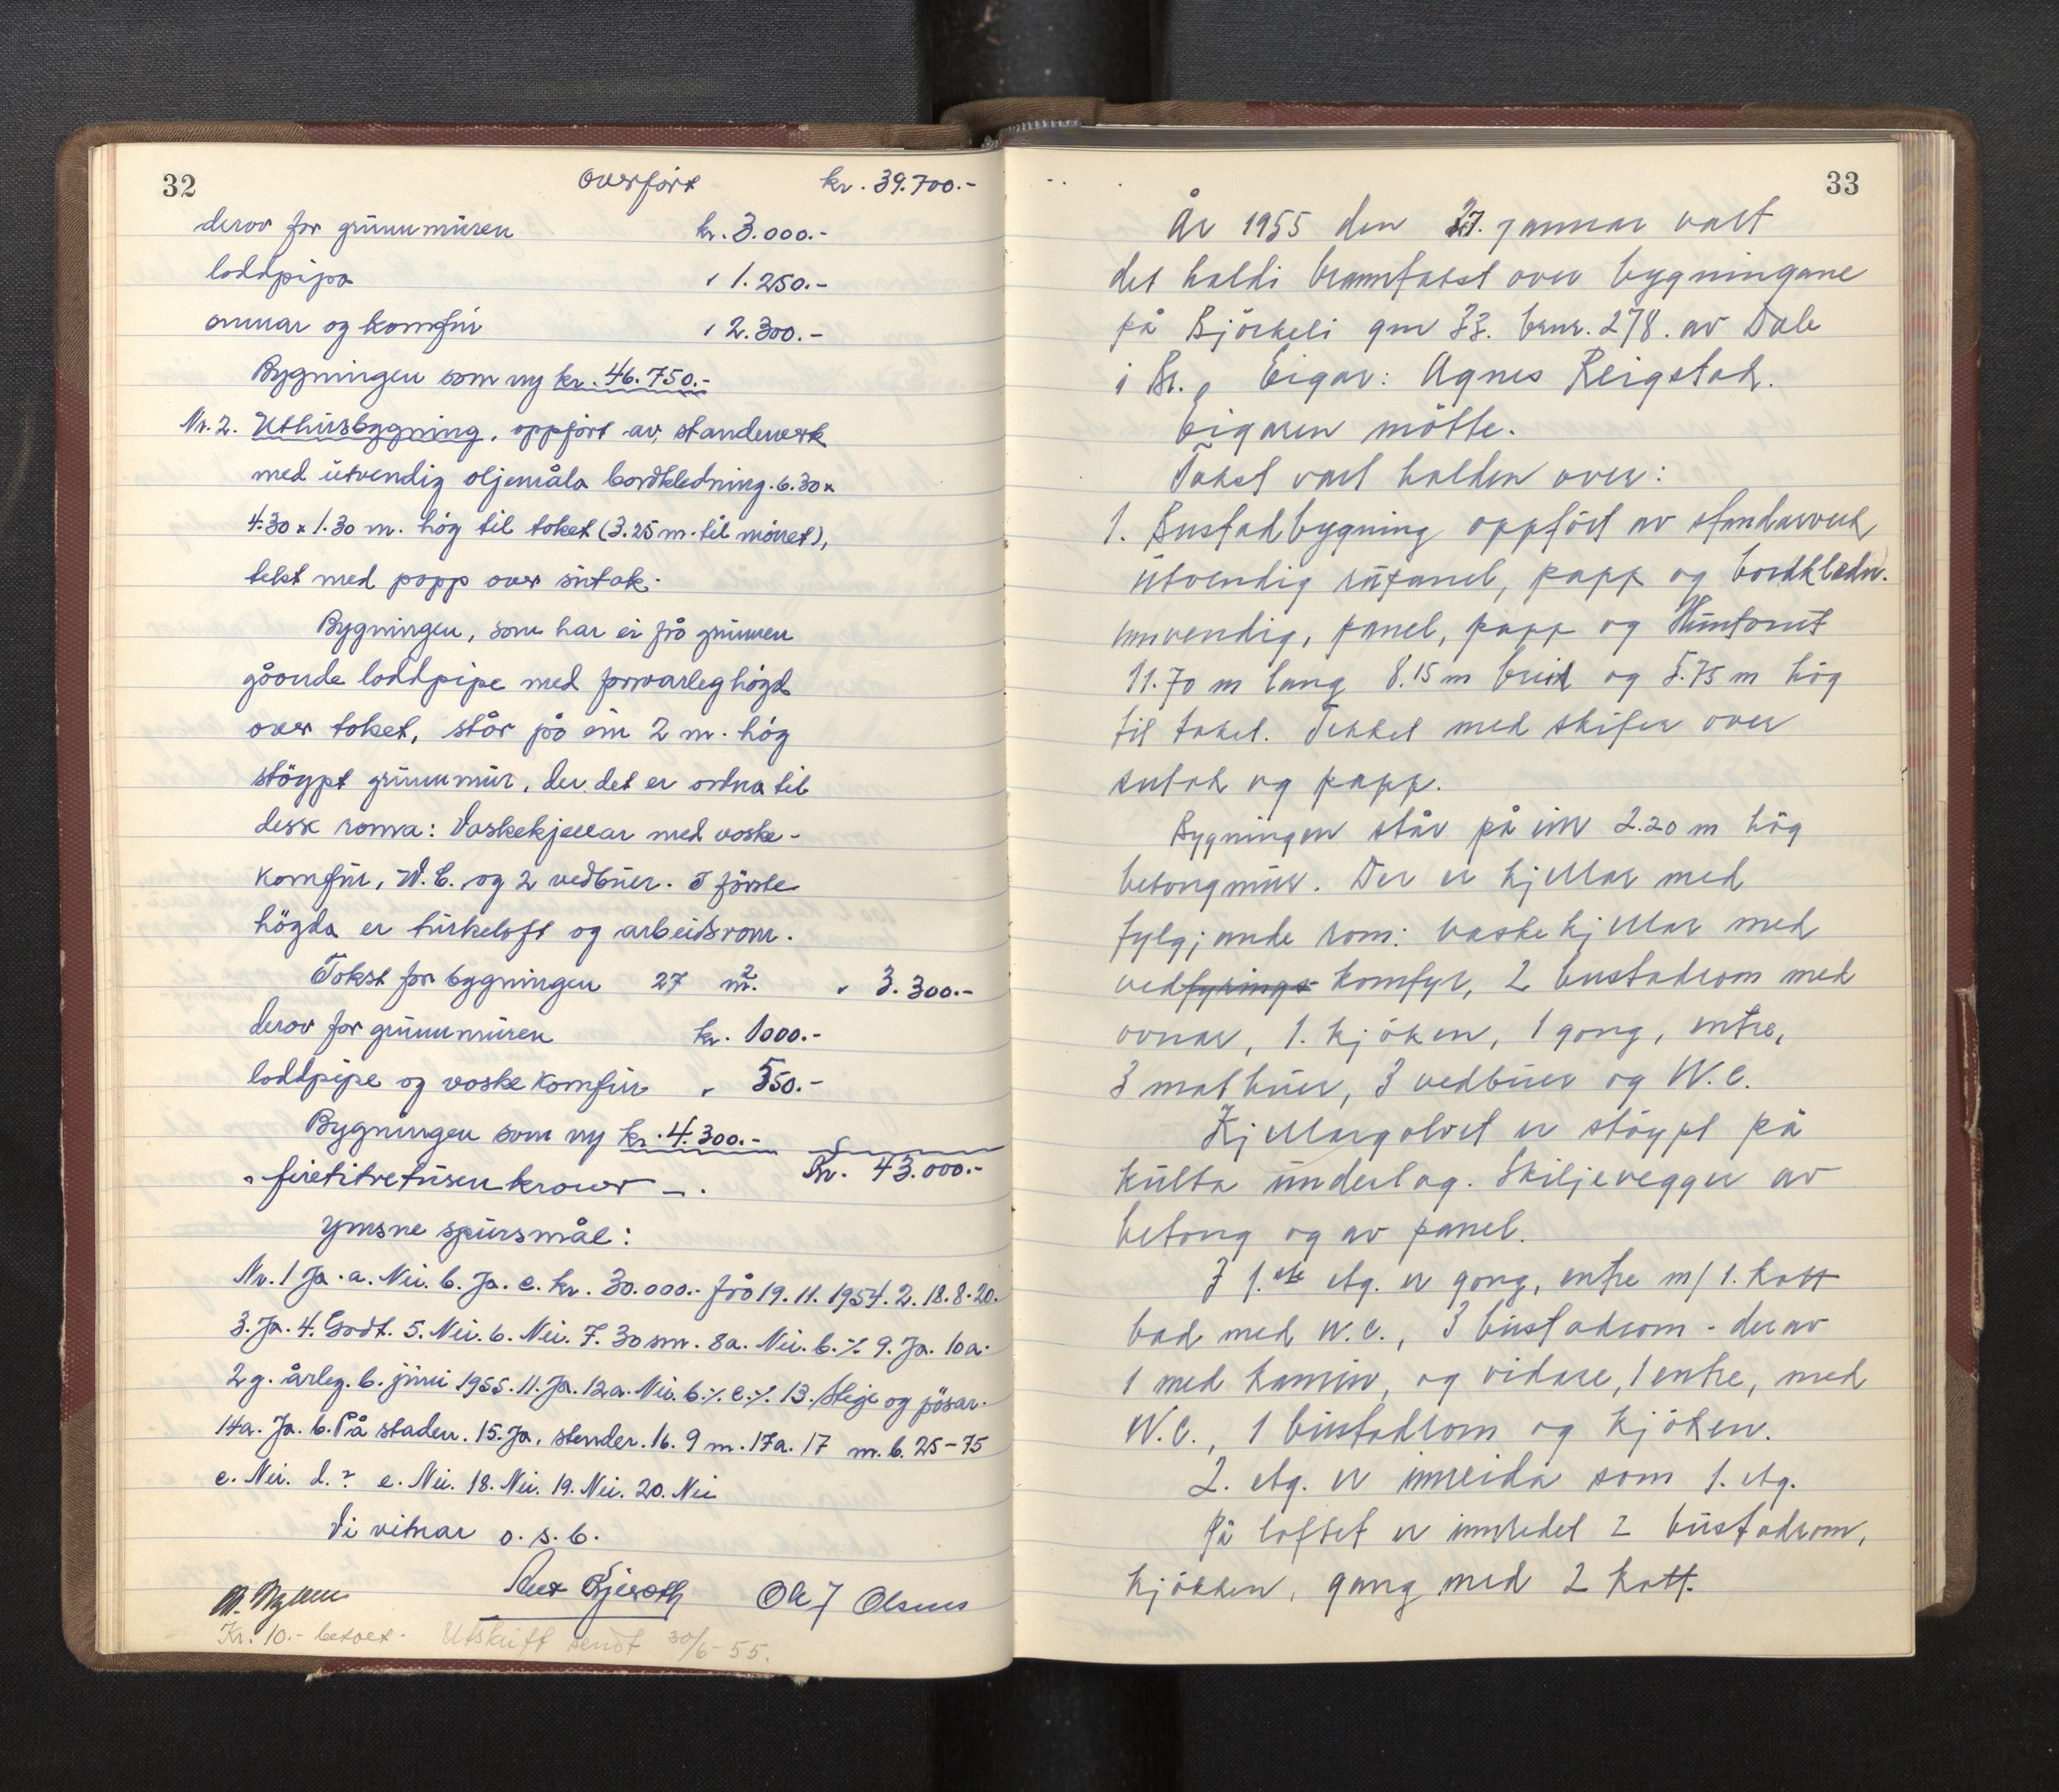 32
Overført kr. 39.700.-
derav for grunnmuren kr. 3.000.-
loddpipa " 1.250.-
omnar og komfur " 2.300.-
Bygningen som ny kr. 46.750.-
Nr. 2. Uthusbygning, oppført av standerverk
med utvendig oljemåla bordkledning. 6.30 x
4.30 x 1.30 m. høg til taket (3.25 m. til mønet),
tekt med papp over sutak.
Bygningen, som har ei frå grunnen
gåande loddpipe med forsvarleg høgd
over taket, står på ein 2 m. høg
støypt grunnmur, der det er ordna til
desse romra: Vaskekjellar med vaske-
komfur, W.C. og 2 vedbuer. I første
høgda er turkeloft og arbeidsrom.
Takst for bygningen 27 m². " 3.300.-
derav for grunnmuren kr. 1000.-
loddpipe og vaskekomfur " 550.-
Bygningen som ny kr. 4.300.-
Kr. 43.000.-
" firetitretusen kroner —.
Ymsne spursmål:
Nr. 1 Ja. a. Nei. b. Ja. c. kr. 30.000.- frå 19.11.1954. 2. 18.8.20.
3. Ja. 4. Godt. 5. Nei. 6. Nei. 7. 30 sm. 8a. Nei. b. ./. 9. Ja. 10a.
2 g. årleg. b. juni 1955. 11. Ja. 12a. Nei. b. ./. c. ./. 13. Stige og pøsar.
14a. Ja. b. På staden. 15. Ja, stender. 16. 9 m. 17a. 17 m. b. 25-75
c. Nei. d. ? e. Nei. 18. Nei. 19. Nei. 20. Nei
Vi vitnar o. s. b.
Ole J Olsens
Kr. 10.- betalt. Utskrift sendt 30/6-55.
33
År 1955 den 27. januar vart
det haldi branntakst over bygningane
på Bjørkeli gnr 33. brnr. 278. av Dale
i Br. Eigar: Agnes Reigstad.
Eigaren møtte.
Takst vart halden over:
1. Bustadbygning oppført av standarverk
utvendig rupanel, papp og bordkledn.
innvendig, panel, papp og Huntonit
11.70 m lang 8.15 m breid og 5.75 m høg
til taket. Tekket med skifer over
sutak og papp.
Bygningen står på ein 2.20 m høg
betongmur. Der er kjellar med
fylgjande rom: vaskekjellar med
vedfyrings komfyr, 2 bustadrom med
ovnar, 1. kjøken, 1 gong, entre,
3 matbuer, 3 vedbuer og W.C.
Kjellargolvet er støypt på
kulta underlag. Skiljevegger av
betong og av panel.
I 1.ste etg. er gong, entre m/ 1. kott
bad med W.C., 3 bustadrom - derav
1 med kamin, og vidare, 1 entre, med
W.C., 1 bustadrom og kjøken.
2. etg. er innreida som 1. etg.
På loftet er innredet 2 bustadrom,
kjøkken, gang med 2 kott.